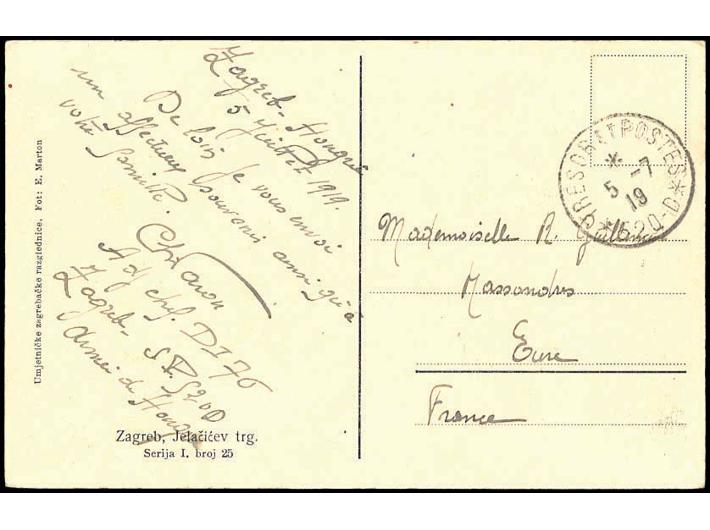 Zagreb-Hongrie
5 Juillet 1919.
De loin je vous envoi
un affectueux souvenir ainsi qu'à
votre famille.
Charon
Adj chef. DI 76
Zagreb- S.P. 520D
Armée de Hongrie
Umjetničke zagrebačke razglednice. Fot: E. Marton
Zagreb, Jelačićev trg.
Serija I. broj 25
TRESOR ET POSTES * 520-D *
*
5 -7
19
Mademoiselle R.
Eure
France